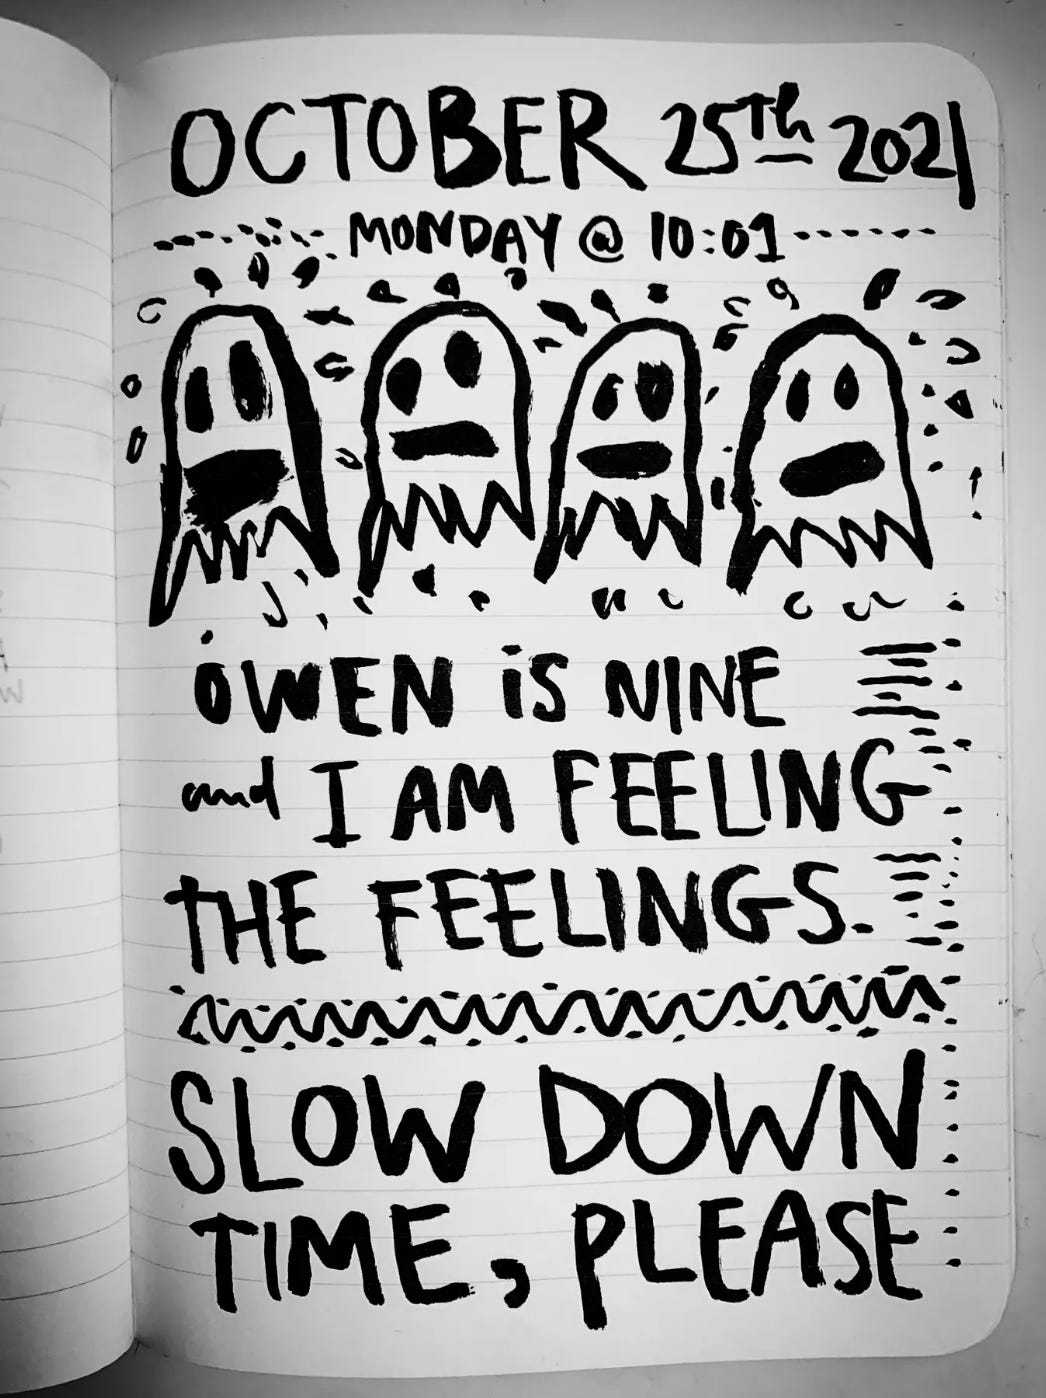 OCTOBER 25Th 2021
MONDAY @ 10:01
OWEN iS NINE
and I AM FEELING
THE FEELINGS.
SLOW DOWN
TIME, PLEASE